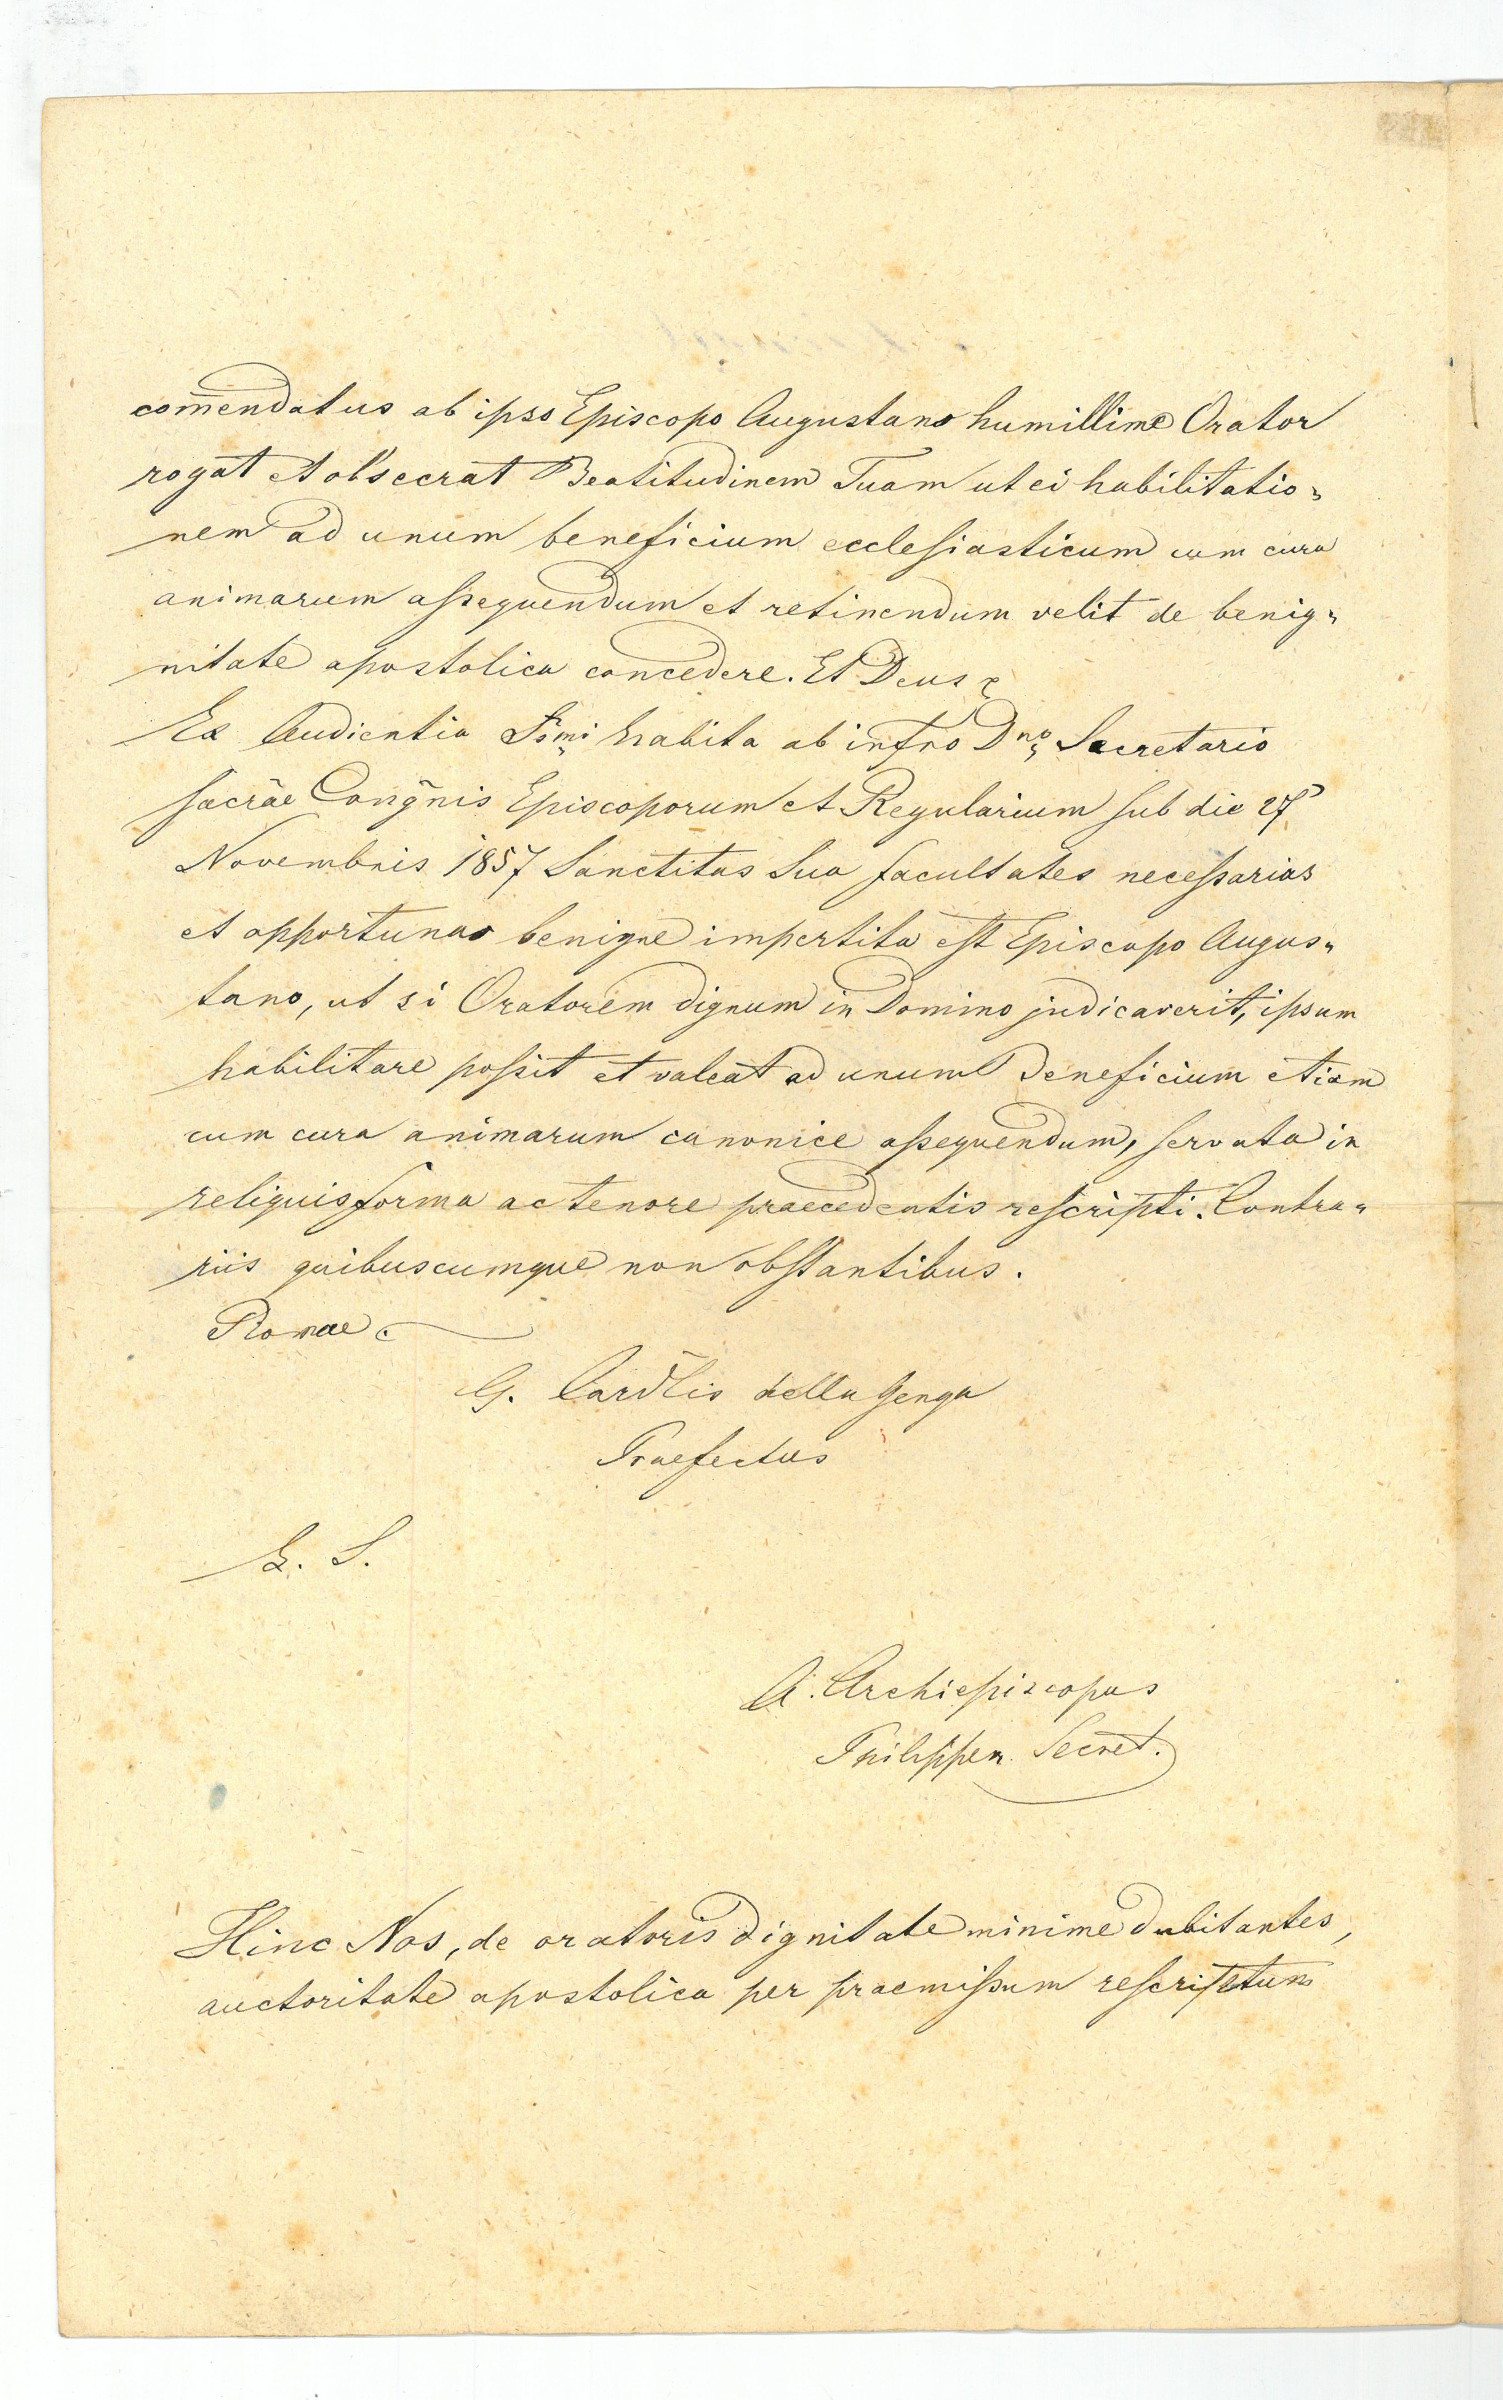 com̄endatus ab ipso Episcopo Augustano humillime Orator
rogat et obsecrat Beatitudinem Tuam ut ei habilitatio„
nem ad unum beneficium ecclesiasticum cum cura
animarum assequendum et retinendum velit de benig„
nitate apostolica concedere. Et Deus
Ex Audientia Ssmi habita ab infrō Dno Secretario
sacrae Congn̄is Episcoporum et Regularium sub die 27
Novembris 1857 Sanctitas Sua facultates necessarias
et opportunas benigne impertita est Episcopo Augus„
tano, ut si Oratorem dignum in Domino judicaverit, ipsum
habilitare possit et valeat ad unum Beneficium etiam
cum cura animarum canonice assequendum, servata in
reliquis forma ac tenore praecedentis rescripti. Contra„
riis quibuscumque non obstantibus.
Romae.
G. Cardlis della Genga
Praefectus
L. S.
A. Archiepiscopus
Philippen. Secret.
Hinc Nos, de oratoris dignitate minime dubitantes,
auctoritate apostolica per praemissum rescriptum